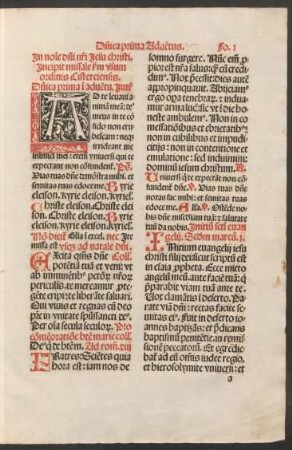 Dñica prima Adūetus. Fo. 1
In noīe dñi nr̄i Jesu christi.
Incipit missale ſm vsum
ordinis Cisterciensis.
Dñica prima ī aduētu. Intr̄
AD te leuaui a
nimā meā: de
meus in te cō
fido non eru
bescam: neqʒ
irrideant me
inimici mei: etem̄ vniuersi qui te
expectant non cōfundent. Ps.
Vias tuas dñe demōstra mihi: et
semitas tuas edoce me. Kyrie
eleison. Kyrie eleison. Kyriel.
Christe eleison. Christe elei
son. Christe eleison. Kyrie
eleison. Kyrie eleison. Kyriel.
Nō dicit̄ Glīa ī excel. nec Ite
missa est vsqʒ ad natale dñi.
Excita q̄sum̄ dñe Coll.
potētiā tuā et veni: vt
ab imminētibꝰ pctōꝝ nr̄oꝝ
periculis. te mereamur ꝓte
gēte eripi: te liberāte saluari.
Qui viuis et regnas cū deo
pr̄e in vnitate spūsancti deꝰ.
Per oīa secula seculoꝝ. Pro
cōmēoratiōe btē marie coll.
Deꝰ q̇ de btē m̄. Ad rom̄. xiij
FRatres: Sciētes quia
hora est: iam nos de
somno surgere. Nūc em̄ ꝓ
pior est nr̄a salusꝗ̄ cū credi
dimꝰ. Nox p̄cessit: dies aut̄
appropinquauit. Abijciam̄
ergo oꝑa tenebraꝝ. et indua
mur arma lucis: sic vt ī die ho
neste ambulem̄. Non in co
messatiōibus et ebrietatibꝰ: nō
non in cubilibus et impudici
tijs: non in contentione et
emulatione: sed induimini
dominū iesum christum. ℟
Uniuersi q̇ te expectāt nō con
fundent dñe. ℣. Vias tuas dñe
notas fac mihi: et semitas tuas
edoce me. Alla ℣. Ostēde no
bis dñe misēdiam tuā: et salutare
tuū da nobis. Initiū scti euan
gelij. Scdm marcū. j.
INitium euangelij iesu
christi filij dei: sicut scriptū est
in esaia ꝓpheta. Ecce mitto
angelū meū ante faciē tuā:
qui p̄parabit viā tuā ante te.
Vox clamātis ī deserto. Pa
rate viā dñi: rectas facite semi
tas eiꝰ. Fuit in deserto io
annes baptizās: et p̄dicans
baptismū penitētie. in remis
sionē peccatoꝝ. Et egredieba
t̄ ad eū om̄is iudee regio,
et hierosolymite vniuersi: et
a